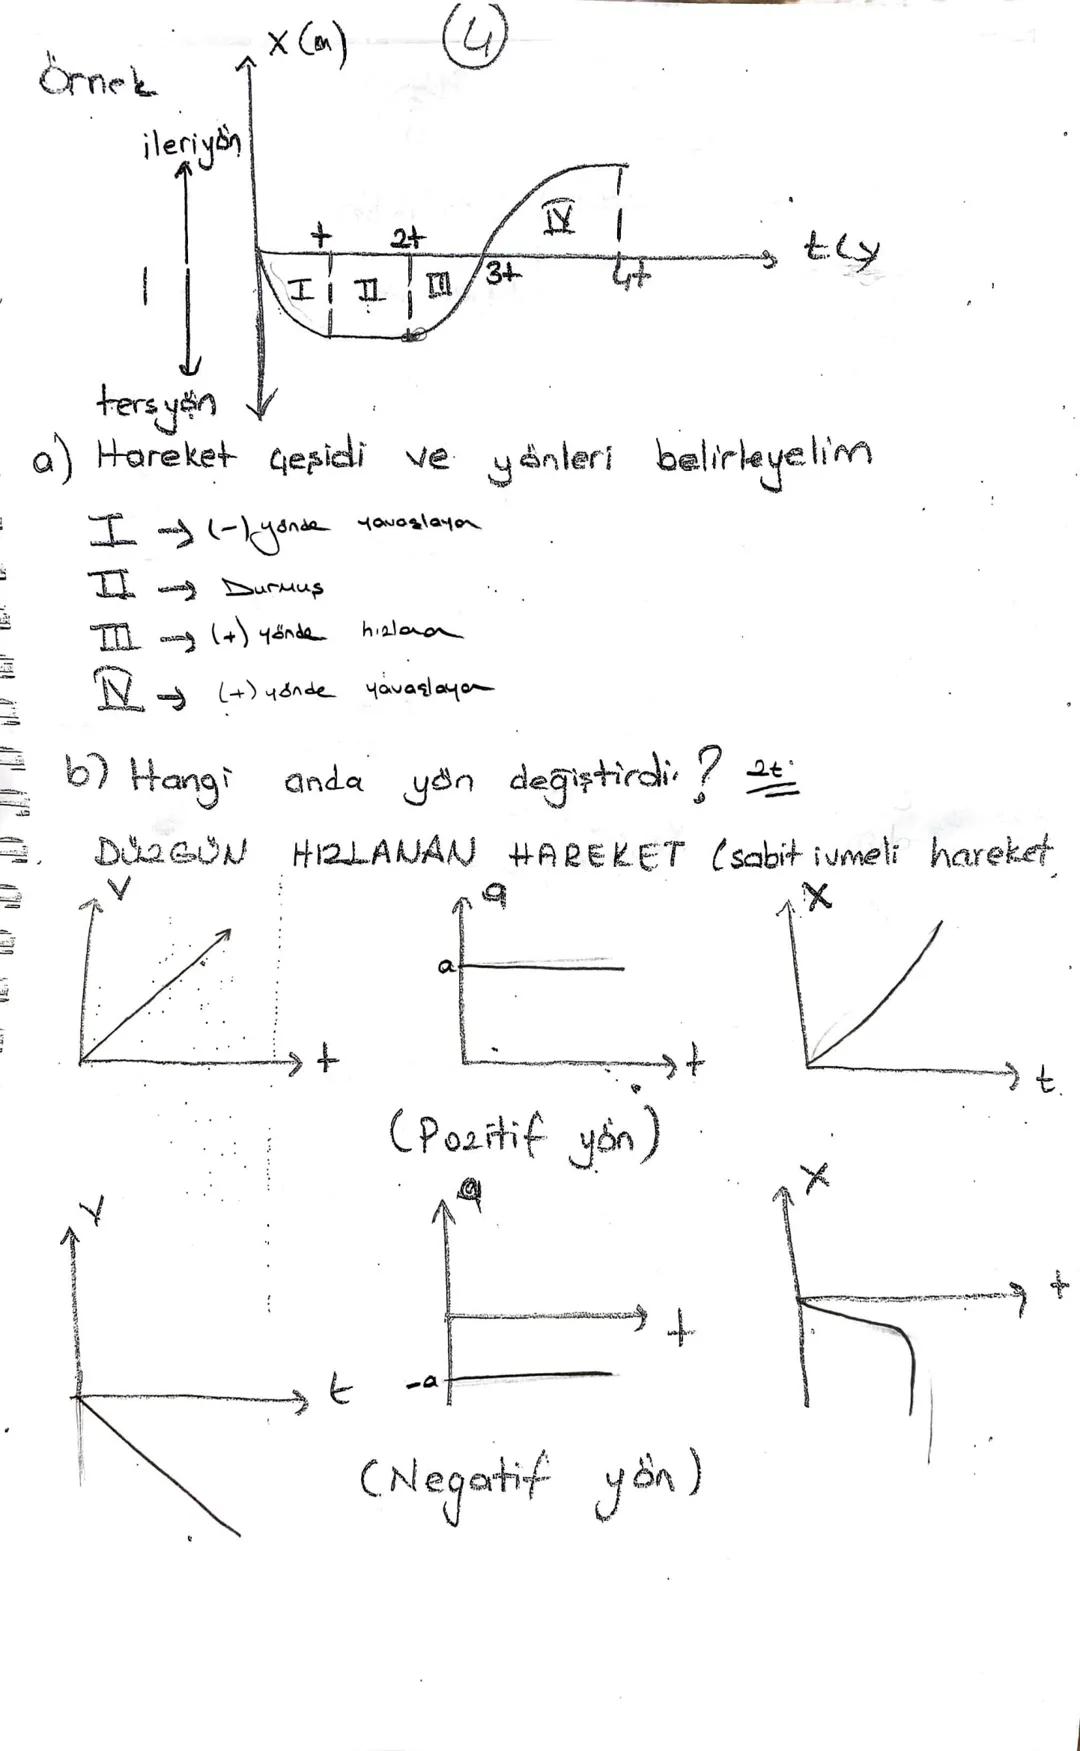 4
x (m)
Örnek
ileri yön
t 2t 3t 4t t(s)
I II III IV
ters yön
a) Hareket çeşidi ve yönleri belirleyelim
I → (-) yönde yavaşlayan
II → Durmuş
III → (+) yönde hızlanan
IV → (+) yönde yavaşlayan
b) Hangi anda yön değiştirdi? 2t
DÜZGÜN HIZLANAN HAREKET (sabit ivmeli hareket
V a X
a
t t t
(Pozitif yön)
V a X
t t t
-a
(Negatif yön)